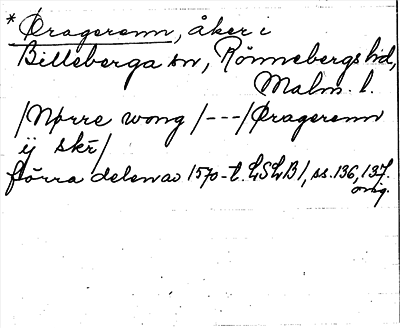 * Øragerenn, åker i
Billeberga sn, Rönnebergs hd,
Malm. l.
/Nørre wong /---/ Øragerenn
ij skr/
förra delen av 1570-t. LSLB 1, ss. 136, 137.
orig.